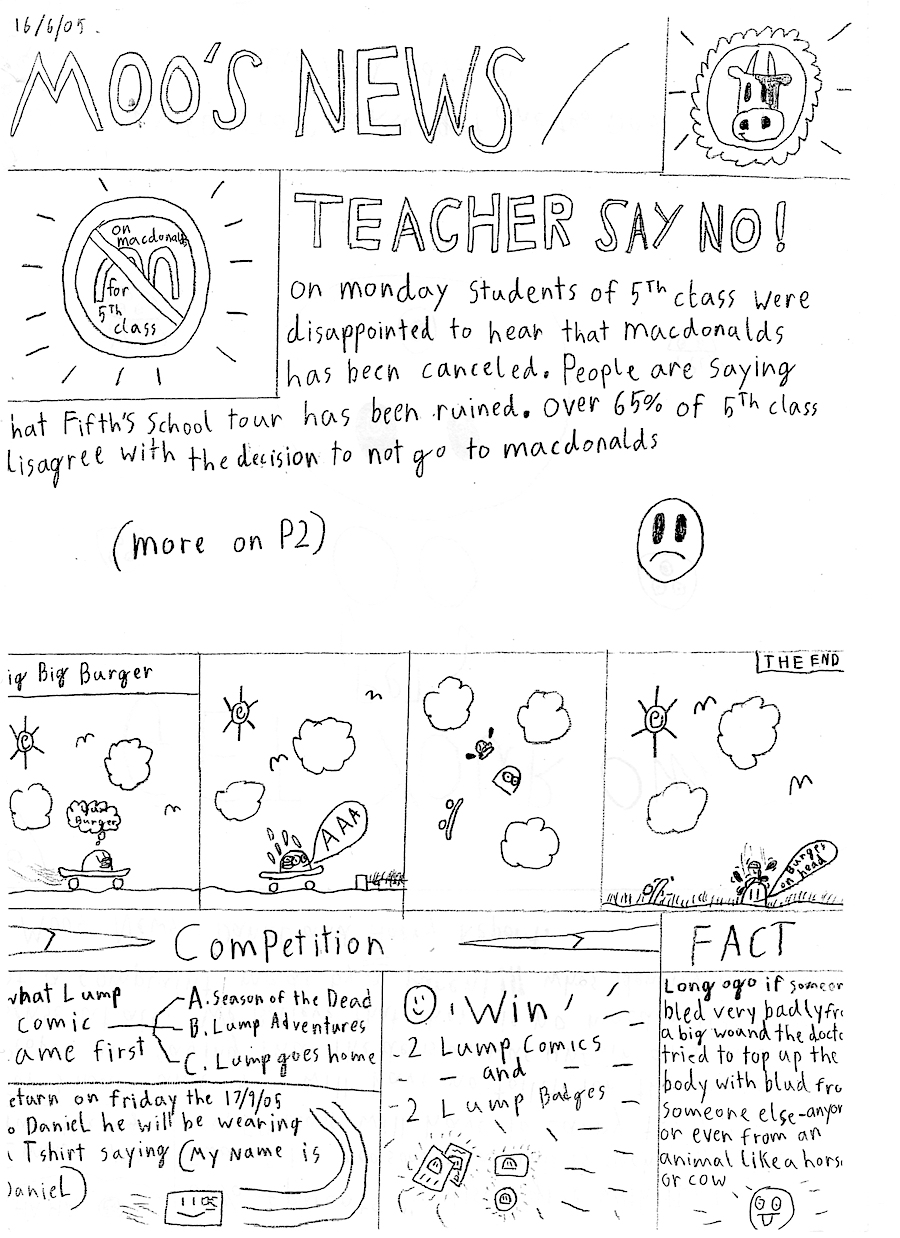 16/6/05.
MOO'S NEWS
on
macdonalds
for
5TH
class
TEACHER SAY NO!
on monday students of 5TH class were
disappointed to hear that macdonalds
has been canceled. People are saying
hat Fifth's School tour has been ruined. Over 65% of 5TH class
lisagree with the decision to not go to macdonalds
(more on P2)
ig Big Burger
Burger
AAA
THE END
Burger
on head
Competition
what Lump
comic
ame first
A. Season of the Dead
B. Lump Adventures
C. Lump goes home
eturn on friday the 17/9/05
o Daniel he will be wearing
Tshirt saying (My Name is
Daniel)
Win
2 Lump Comics
and
2 Lump Badges
FACT
Long ogo if someon
bled very badly fr
a big wound the docto
tried to top up the
body with blud fro
someone else-anyon
or even from an
animal like a hors
or cow